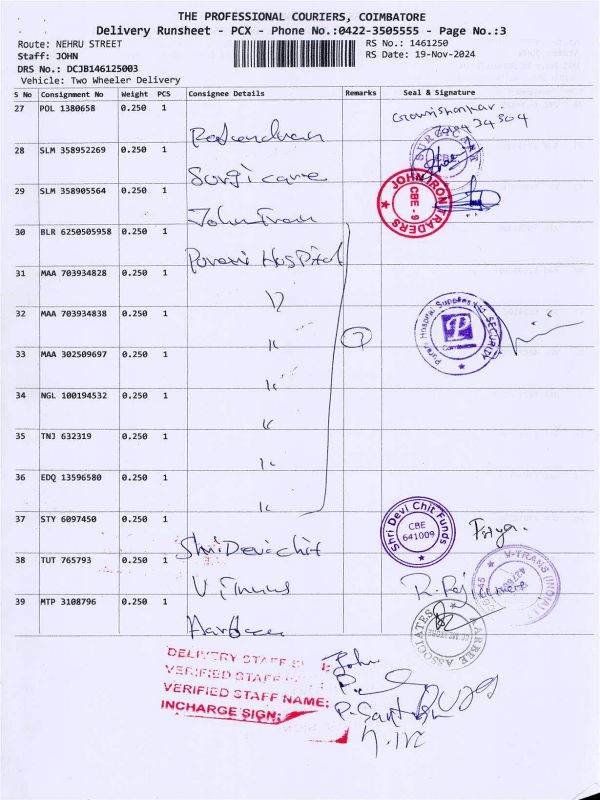 THE PROFESSIONAL COURIERS, COIMBATORE
Delivery Runsheet - PCX - Phone No.:0422-3505555 - Page No.:3
Route: NEHRU STREET
RS No.: 1461250
Staff: JOHN
RS Date: 19-Nov-2024
DRS No.: DCJB146125003
Vehicle: Two Wheeler Delivery
S No Consignment No Weight PCS Consignee Details Remarks Seal & Signature
27 POL 1380658 0.250 1
28 SLM 358952269 0.250 1
Surgi care
29 SLM 358905564 0.250 1
John Iron
JOHN IRON TRADERS
CBE - 9
30 BLR 6250505958 0.250 1
Hospital
31 MAA 703934828 0.250 1
32 MAA 703934838 0.250 1
7
SECURITY
33 MAA 302509697 0.250 1
34 NGL 100194532 0.250 1
35 TNJ 632319 0.250 1
36 EDQ 13596580 0.250 1
37 STY 6097450 0.250 1
Shri Devi chit
Shri Devi Chit Funds
CBE
641009
38 TUT 765793 0.250 1
V-TRANS (INDIA)
39 MTP 3108796 0.250 1
ASSOCIATES
DELIVERY STAFF
John
VERIFIED STAFF
VERIFIED STAFF NAME:
INCHARGE SIGN: